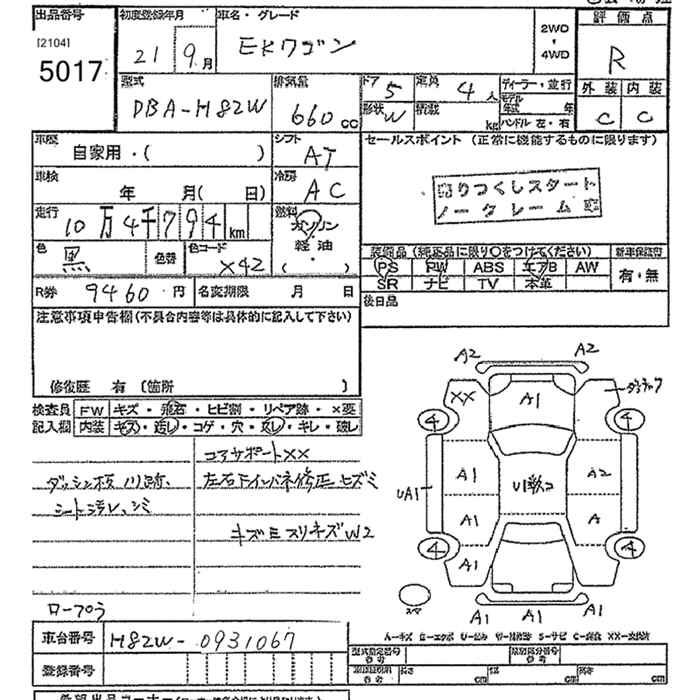 出品番号
[2104]
5017
初度登録年月
21年 9月
車名・グレード
EKワゴン
2WD
・
4WD
評価点
R
外装 内装
C C
型式
DBA-H82W
排気量
660 cc
ドア 5
定員 4 人
形状 W
積載 kg
ディーラー・並行
モデル年式 年
ハンドル 左・右
車歴
自家用・( )
シフト
AT
セールスポイント (正常に機能するものに限ります)
売りつくしスタート
ノークレーム
車検
年 月( 日)
冷房
AC
走行
10万4千794 km
燃料
ガソリン
・
軽油
( )
色
黒
色替
色コード
X42
装備品 (純正品に限り〇をつけてください)
新車保証書
PS PW ABS エアB AW
SR ナビ TV 本革
有・無
R券 9460 円
名変期限 月 日
後日品
注意事項申告欄 (不具合内容等は具体的に記入して下さい)
修復歴 有 (箇所 )
検査員
記入欄
FW キズ・飛石・ヒビ割・リペア跡・×要
内装 キズ・汚レ・コゲ・穴・スレ・キレ・破レ
コアサポートXX
ダッシュ板ノリ跡、
左右Fインパネ修正セズミ
シート汚レ、シミ
キズミスリキズW2
A2 A2
XX A1
4 4
A1 A2
UA1
A1 A
4 4
A1
A1 A1
スペア
車台番号 H82W-0931067
登録番号
型式指定番号
参考
類別区分番号
参考
長さ cm 幅 cm 高さ cm